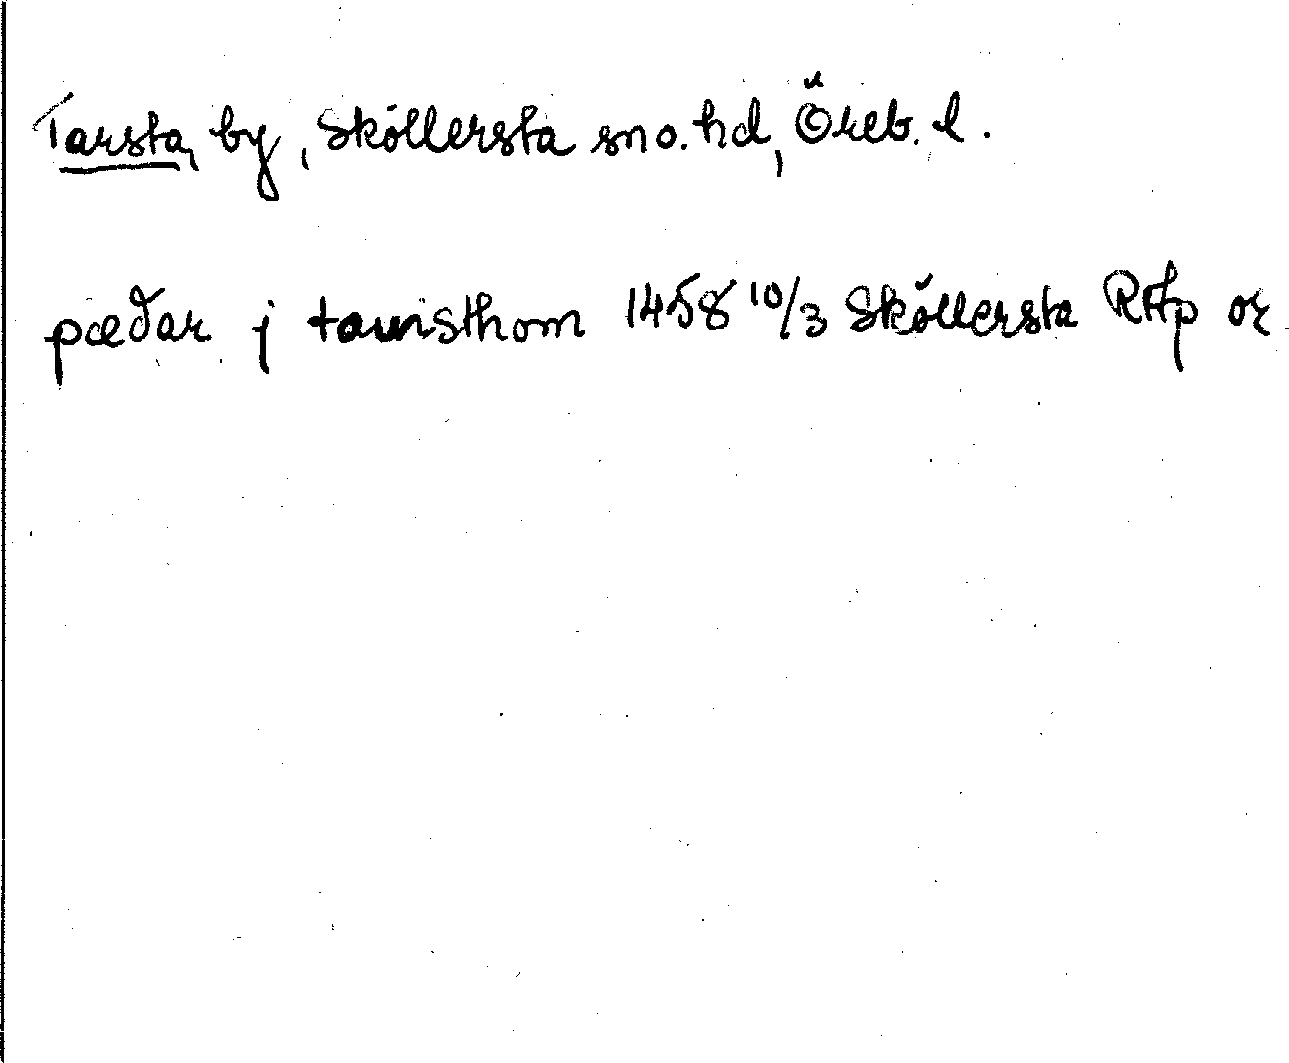 Tarsta, by, Sköllersta sn o. hd, Öreb. l.
pæðar j taursthom 1458 10/3 Sköllersta RAp or